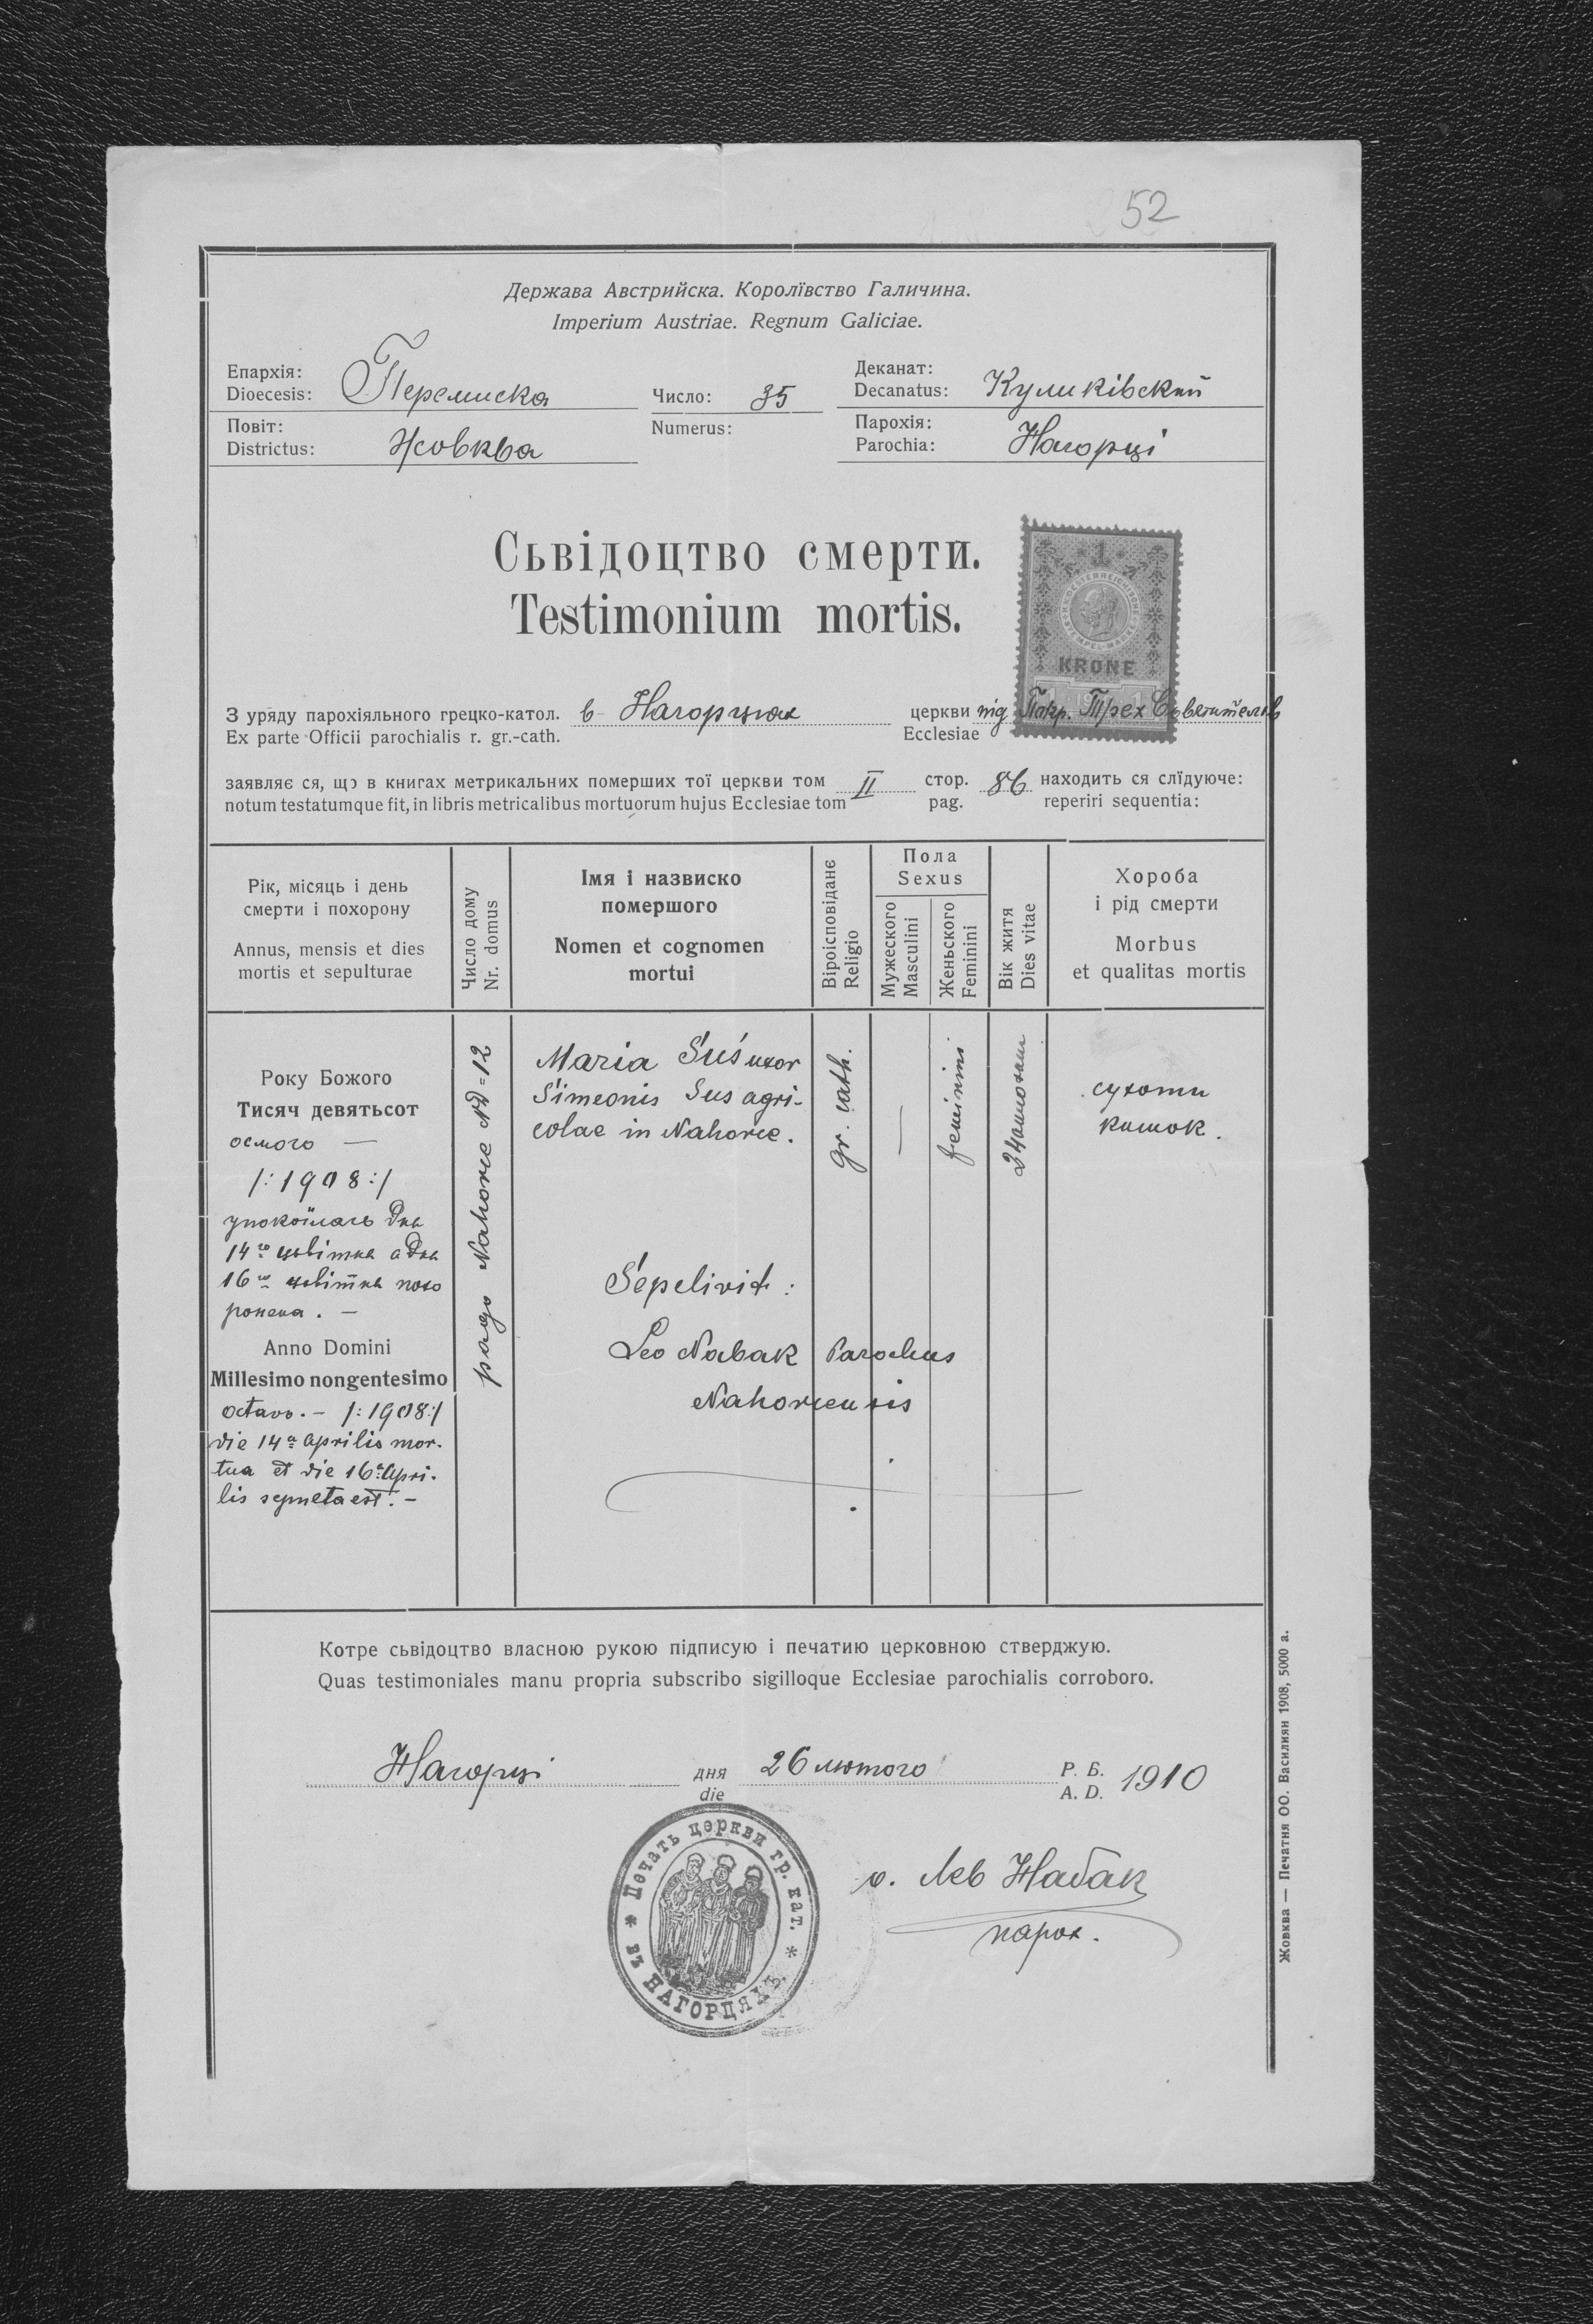 52
Держава Австрийска. Королївство Галичина.
Imperium Austriae. Regnum Galiciae.
Епархія:
Dioecesis: Перемиска
Число: 35
Numerus:
Деканат:
Decanatus: Куликівский
Повіт:
Districtus: Жовква
Парохія:
Parochia: Нагорці
Сьвідоцтво смерти.
Testimonium mortis.
1
KRONE
З уряду парохіяльного грецко-катол. в Нагорцях церкви під Покр. Трех Святителїв
Ex parte Officii parochialis r. gr.-cath. Ecclesiae
заявляє ся, що в книгах метрикальних померших тої церкви том II стор. 86 находить ся слїдуюче:
notum testatumque fit, in libris metricalibus mortuorum hujus Ecclesiae tom pag. reperiri sequentia:
Рік, місяць і день
смерти і похорону
Annus, mensis et dies
mortis et sepulturae
Число дому
Nr. domus
Імя і назвиско
померш­ого
Nomen et cognomen
mortui
Віроісповіданє
Religio
Пола
Sexus
Мужеского
Masculini
Женьского
Feminini
Вік житя
Dies vitae
Хороба
і рід смерти
Morbus
et qualitas mortis
Року Божого
Тисяч девятьсот
осмого —
/: 1908 :/
упокоїлась дня
14го цьвітня а дня
16го цьвітня похо
ронена. —
Anno Domini
Millesimo nongentesimo
octavo. – /: 1908 :/
die 14a aprilis mor-
tua et die 16a apri-
lis sepulta est. –
pago Nahorce Nd = 12
Maria Suś uxor
Simeonis Sus agri-
colae in Nahorce.
Sepelivit:
Leo Nabak Parochus
Nahorcensis
gr. cath.
—
feminini
24
сухоти
кишок.
Котре сьвідоцтво власною рукою підписую і печатию церковною стверджую.
Quas testimoniales manu propria subscribo sigilloque Ecclesiae parochialis corroboro.
Нагорці дня 26 лютого Р. Б. 1910
die A. D.
Печать церкви гр. кат.
въ НАГОРЦЯХЪ
о. Лев Набак
парох.
Жовква — Печатня ОО. Василиян 1908, 5000 а.